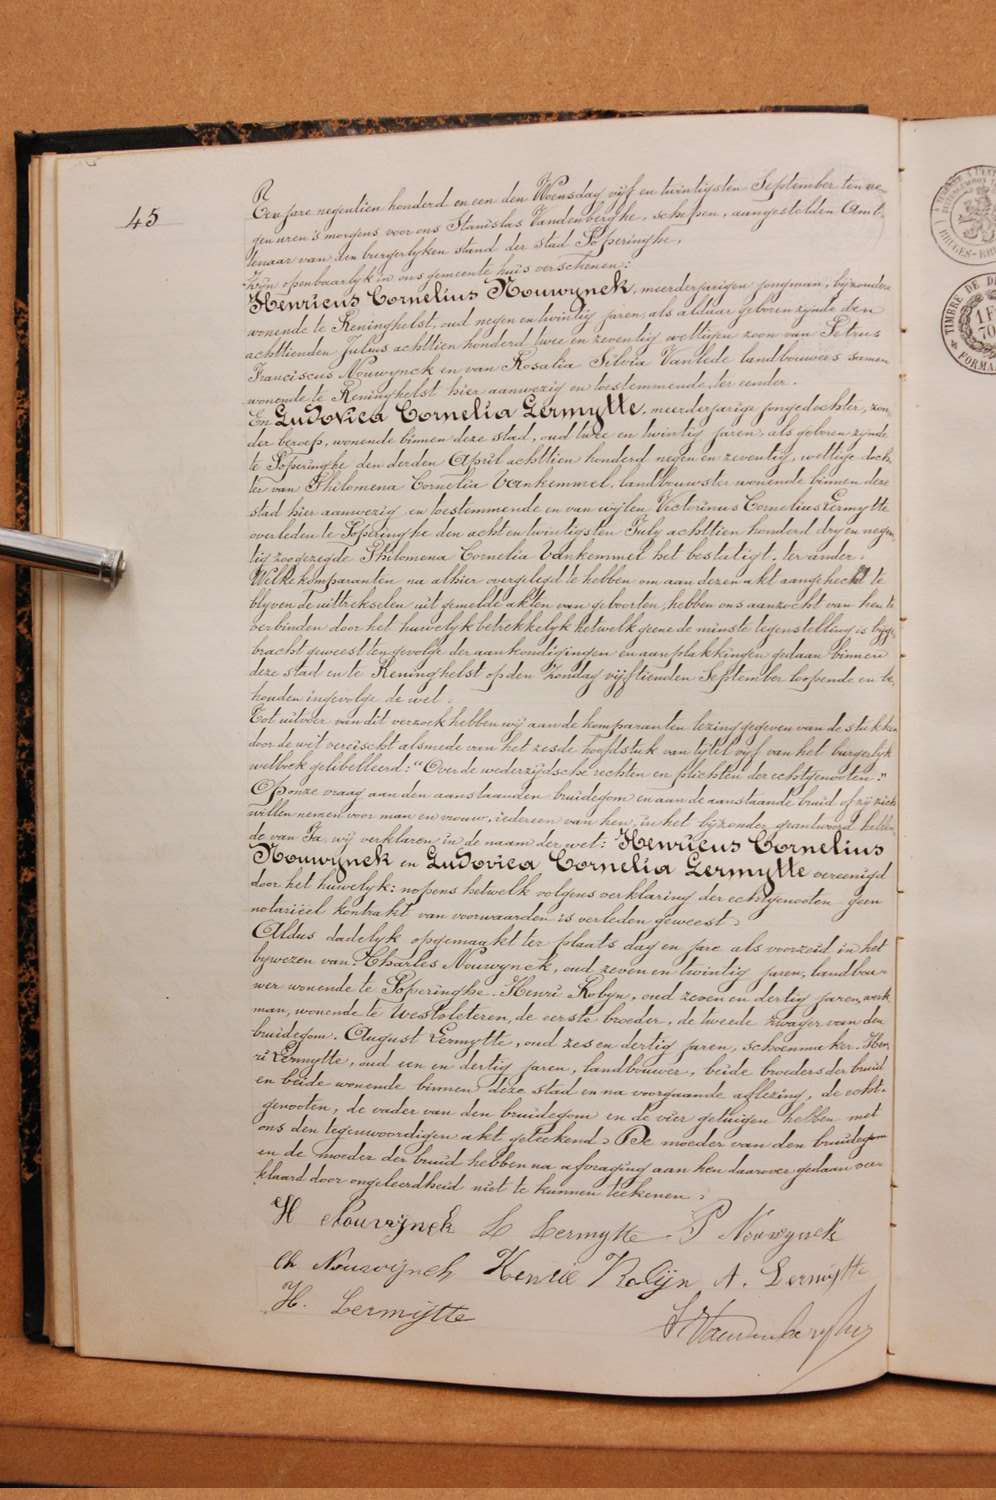 45
Ten jare negentien honderd en een den Woensdag vijf en twintigsten September ten ne-
gen uren 's morgens voor ons Stanislas Vandenberghe, schepen, aangestelden Amb-
tenaar van den burgerlyken stand der stad Poperinghe,
zyn openbaarlyk in ons gemeente huis verschenen:
Henricus Cornelius Nouwynck, meerderjarigen jongman, byzondere
wonende te Reninghelst, oud negen en twintig jaren, als aldaar geboren zynde den
achttienden Julius achttien honderd twee en zeventig wettigen zoon van Petrus
Franciscus Nouwynck en van Rosalia Silvia Vanlede landbouwers samen
wonende te Reninghelst hier aanwezig en toestemmende, ter eender.
En Ludovica Cornelia Lermytte, meerderjarige jongedochter, zon-
der beroep, wonende binnen deze stad, oud twee en twintig jaren, als geboren zynde
te Poperinghe den derden April achttien honderd negen en zeventig, wettige doch-
ter van Philomena Cornelia Vankemmel, landbouwster wonende binnen deze
stad hier aanwezig en toestemmende en van wijlen Victorinus Cornelius Lermytte
overleden te Poperinghe den acht en twintigsten July achttien honderd dry en negen-
tig zoogezegde Philomena Cornelia Vankemmel het bestetigt, ter ander.
Welke komparanten na alhier overgelegd te hebben om aan dezen akt aangehecht te
blyven de uittrekselen uit gemelde akten van geboorten, hebben ons aanzocht van hen te
verbinden door het huwelyk betrekkelyk hetwelk geene de minste tegenstelling is bijge-
bracht geweest ten gevolge der aankondigingen en aanplakkingen gedaan binnen
deze stad en te Reninghelst op den Zondag vijftienden September loopende en be-
houden ingevolge de wet.
Tot uitvoer van dit verzoek hebben wij aan de komparanten lezing gegeven van de stukken
door de wet vereischt alsmede van het zesde hoofdstuk van tytel vijf van het burgerlyk
wetboek gelibelleerd: "Over de wederzijdsche rechten en plichten der echtgenooten."
Op onze vraag aan den aanstaanden bruidegom en aan de aanstaande bruid of zy zich
willen nemen voor man en vrouw, iedereen van hen, in het byzonder geantwoord hebben-
de van Ja, wij verklaren in de naam der wet: Henricus Cornelius
Nouwynck en Ludovica Cornelia Lermytte vereenigd
door het huwelyk: nopens hetwelk volgens verklaring der echtgenooten geen
notariëel kontrakt van voorwaarden is verleden geweest.
Aldus dadelyk opgemaakt ter plaats dag en jare als voorzeid in het
bywezen van Charles Nouwynck, oud zeven en twintig jaren, landbou-
wer wonende te Poperinghe. Henri Robyn, oud zeven en dertig jaren, werk-
man, wonende te Westvleteren, de eerste broeder, de tweede zwager van den
bruidegom. August Lermytte, oud zes en dertig jaren, schoenmaker. Hen-
ri Lermytte, oud een en dertig jaren, landbouwer, beide broeders der bruid
en beide wonende binnen deze stad en na voorgaande aflezing, de echt-
genooten, de vader van den bruidegom en de vier getuigen hebben met
ons den tegenwoordigen akt geteekend. De moeder van den bruidegom
en de moeder der bruid hebben na afvraging aan hen daarover gedaan ver-
klaard door ongeleerdheid niet te kunnen teekenen.
H Nouwynck L Lermytte P Nouwynck
Ch Nouwynck Henrie Robijn A. Lermytte
H. Lermijtte
St Vandenberghe
TIMBRE DE
1 F
70
FORMA
BRUGES-BR